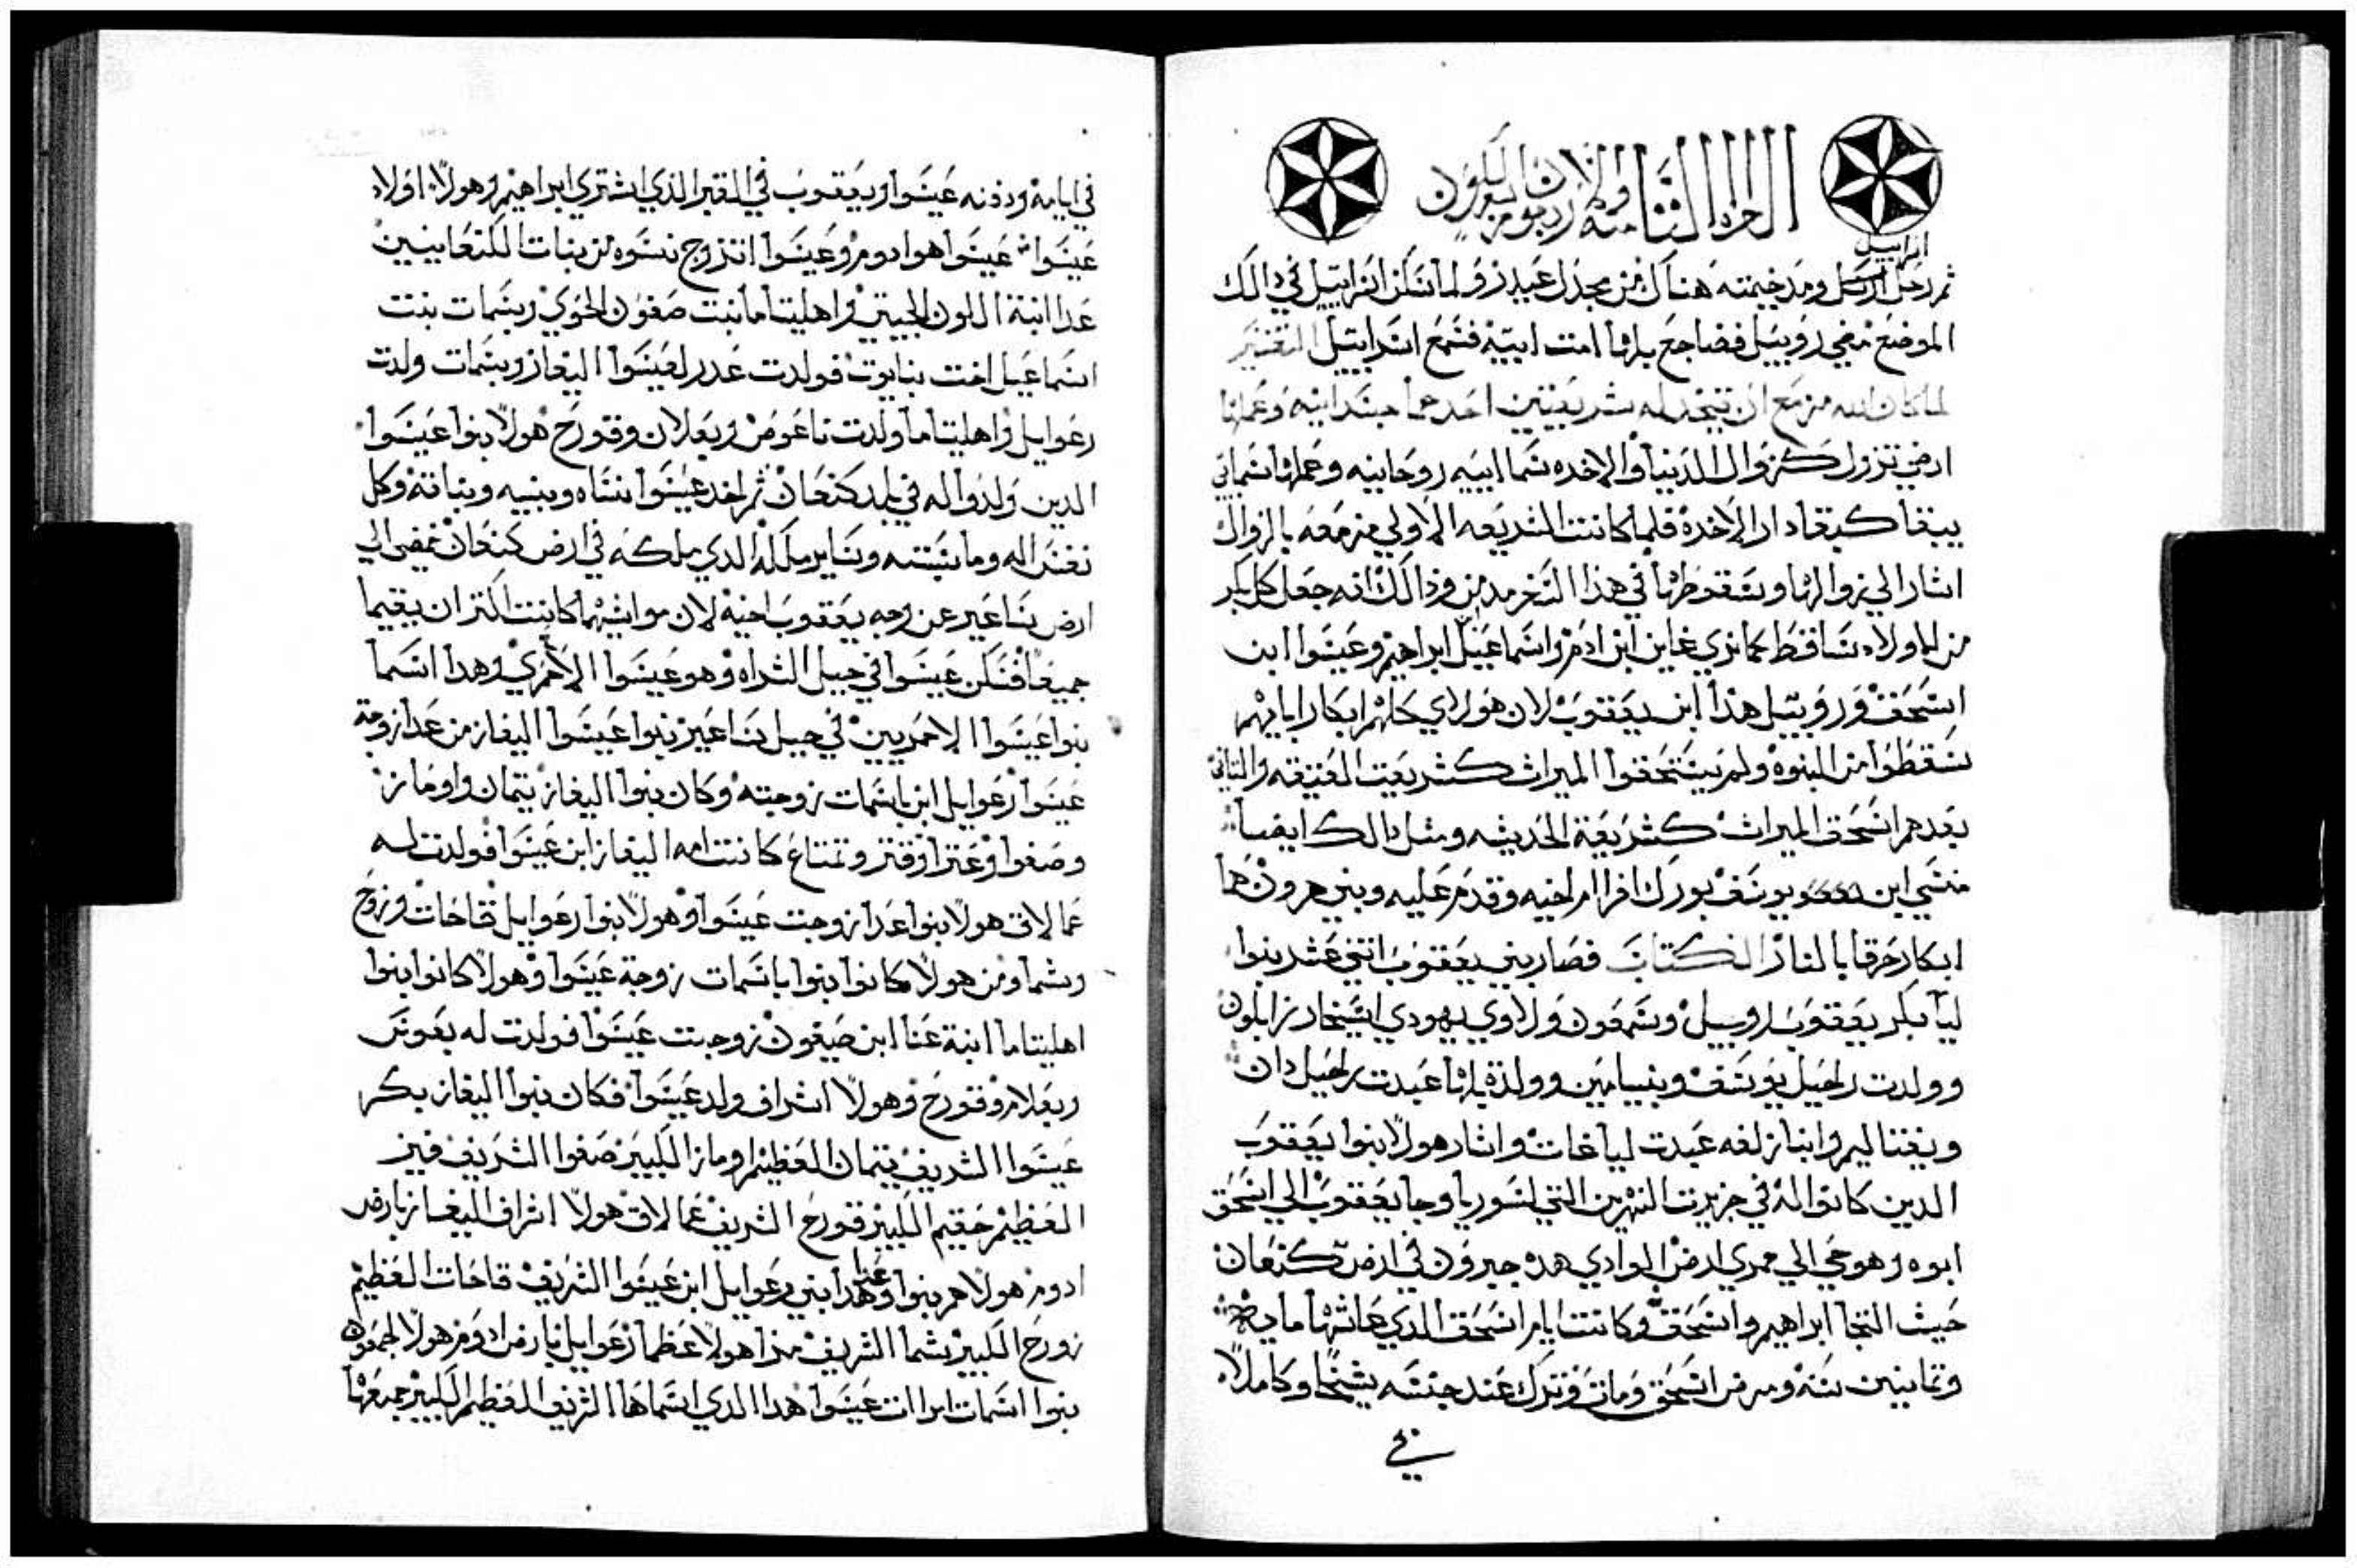 الجزء الثامنة والاربعون
اسراييل
ثم رحل ومد خيمته هناك من مجدل عبدر ولما سكن اسراييل في دالك
الموضع مضي روبيل فضاجع بلها امت ابيه فسمع اسراييل التفسير
لما كان الله مزمع ان تتخد له شريعتين احدهما جسدانيه وعملها
ارضي تزول كزوال الدنيا والاخره سماايه روحانيه وعملها سمايي
يبقا كبقا دار الاخرة فلما كانت الشريعه الاولي مزمعه بالزوال
اشار الي زوالها وسقوطها في هذا ودالك انه جعل كل بكر
من الاولاد ساقط كما نري غاين ابن ادم واسماعيل ابن ابراهيم وعيسوا ابن
اسحق وروبيل هذا ابن يعقوب لان هولاي كلهم ابكار ابايهم
سقطوا من البنوه ولم يستحقوا الميراث كشريعت العتيقه والتاني
بعدهم اسحق الميراث كشريعة الحديثه ومثل دالك ايضا
منشي ابن يوسف بورك افراام اخيه وقدم عليه وبني هرون هما
ابكار حرقا بالنار الكتاب فصار بني يعقوب اتني عشر بنوا
ليا بكر يعقوب روبيل وشمعون ولاوي يهودي ايسخار زابلون
وولدت راحيل يوسف وبنيامين وولدة بلها عبدت راحيل دان
ونفتاليم وابنا زلفه عبدت ليا غات واشار هولا بنوا يعقوب
الدين كانوا له في جزيرت النهرين التي لسوريا وجا يعقوب الي اسحق
ابوه وهو حي الي ممري ارض الوادي هده حبرون في ارض كنعان
حيث التجا ابراهيم واسحق وكانت ايام اسحق الدي عاشها مايه
وتمانيين سنه ومرض اسحق ومات وترك عند جنسه شيخا وكاملا
في
في ايامه ودفنه عيسوا ويعقوب في القبر الذي اشتري ابراهيم وهولا اولاد
عيسوا عيسوا هو ادوم وعيسوا اتزوج نسوه من بنات الكنعانيين
عدا ابنة الون الحيتي واهليتاما بنت صغون الحوي وبسمات بنت
اسماعيل اخت بنايوت فولدت عدر لعيسوا اليغاز وبسمات ولدت
رعوايل واهليتاما ولدت ناعوص ويعلان وقورح هولا بنوا عيسوا
الدين ولدوا له في بلد كنعان ثم اخد عيسوا نساه وبنيه وبناته وكل
نفس اله وماشيته وساير ماله الدي ملكه في ارض كنعان فمضي الي
ارض ساعير عن وجه يعقوب اخيه لان مواشيهما كانت اكتر ان يقيما
جميعا فسكن عيسوا في جبل الشراه وهو عيسوا الاحمري وهدا اسما
بنوا عيسوا الاحمريين في جبل ساعير بنوا عيسوا اليغاز من عدا زوجة
عيسوا رعوايل ابن باسمات زوجته وكان بنوا اليغاز تيمان واومار
وصغوا وعتزا وقنز وتمتاع كانت امه اليغاز ابن عيسوا فولدت له
عمالاق هولا بنوا عدا زوجت عيسوا وهولا بنوا رعوايل قاحات وزورح
وشما ومن هولا كانوا بنوا باسمات زوجة عيسوا وهولا كانوا بنوا
اهليتاما ابنة عنا ابن صيغون زوجت عيسوا فولدت له يعوس
ويعلام وقورح وهولا اشراف ولد عيسوا فكان بنوا اليغاز بكر
عيسوا الشريف تيمان العظيم اومار الكبير صغوا الشريف قنز
العظيم حقيم الكبير قورح الشريف عمالاق هولا اشراف اليغاز بارض
ادوم هولا هم بنوا عدا وهدا بني رعوايل ابن عيسوا الشريف قاحات العظيم
زورح الكبير شما الشريف مزا هولا عظما رعوايل بارض ادوم هولا
بنوا اسمات امراات عيسوا هدا الدي اسماها الشريف العظيم الكبير جميعها